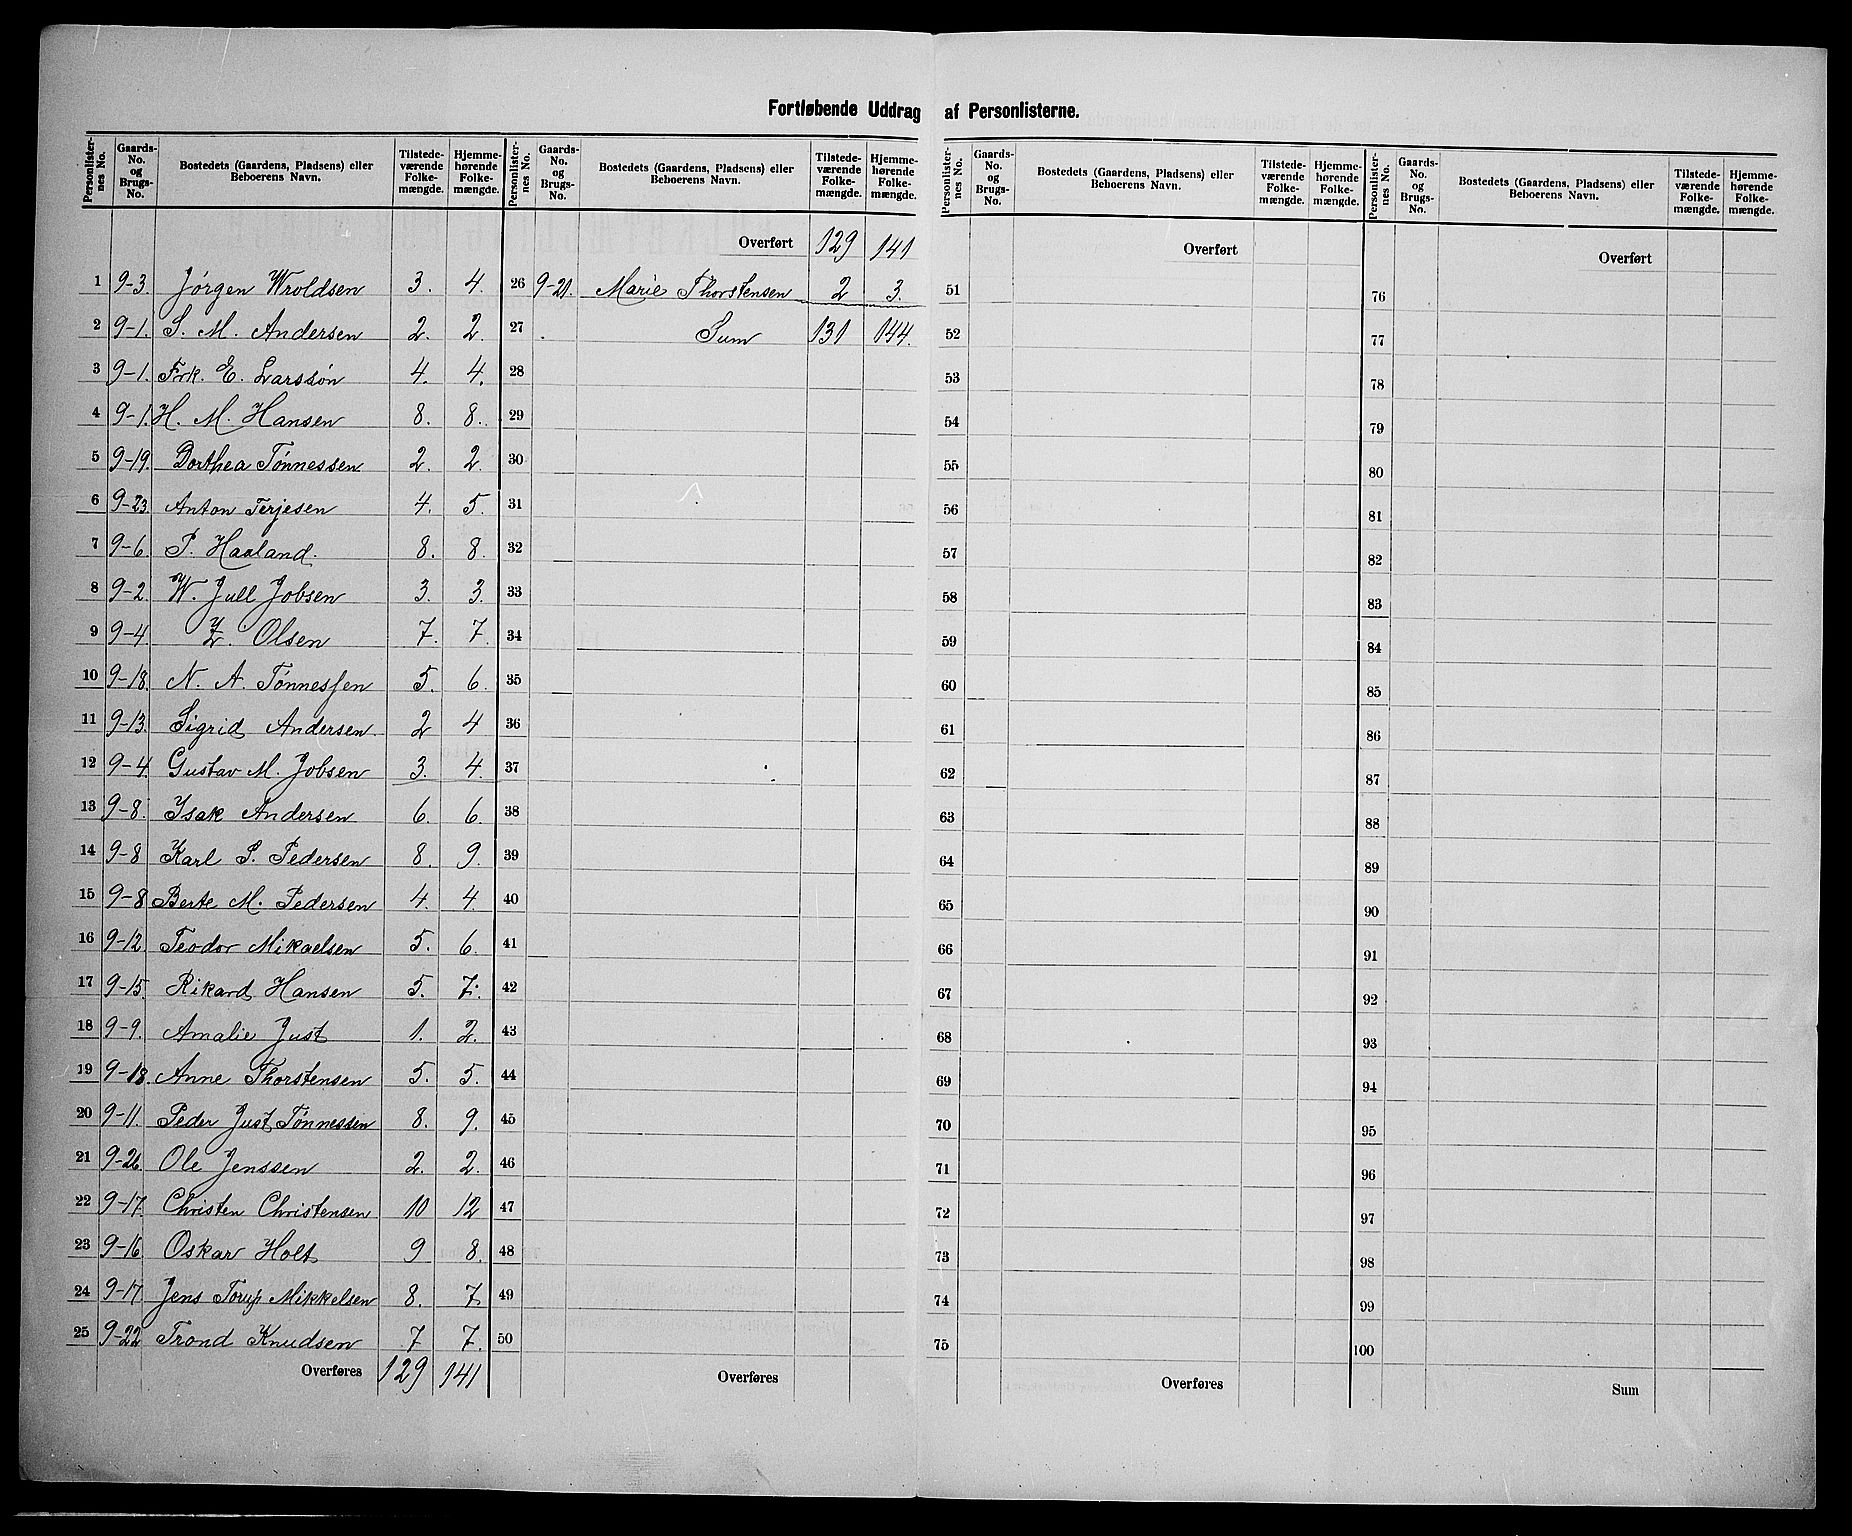 Fortløbende Uddrag af Personlisterne.
Personlisternes No. Gaards-No. og Brugs-No. Bostedets (Gaardens, Pladsens) eller Beboerens Navn. Tilstedeværende Folkemængde. Hjemmehørende Folkemængde.
1 9-3. Jørgen Wroldsen 3. 4.
2 9-1. S. M. Andersen 2. 2.
3 9-1. Frk. E. Larssøn 4. 4.
4 9-1. H. M. Hansen 8. 8.
5 9-19. Dorthea Tønnessen 2. 2.
6 9-23. Anton Terjesen 4. 5.
7 9-6. P. Haaland. 8. 8.
8 9-2. W. Juell Jobsen 3. 3.
9 9-4 Z. Olsen 7. 7.
10 9-18. N. A. Tønnessen 5. 6.
11 9-13. Sigrid Andersen. 2 4
12 9-4 Gustav M. Jobsen 3. 4.
13 9-8. Isak Andersen 6. 6.
14 9-8 Karl P. Pedersen 8. 9.
15 9-8 Berte M. Pedersen 4. 4.
16 9-12 Teodor Mikaelsen 5. 6.
17 9-15. Rikard Hansen 5. 7.
18 9-9. Amalie Just 1. 2.
19 9-18. Anne Thorstensen 5. 5.
20 9-11. Peder Just Tønnessen 8. 9.
21 9-26. Ole Jenssen 2. 2.
22 9-17. Christen Christensen 10 12
23 9-16 Oskar Holt 9 8.
24 9-17 Jens Torup Mikkelsen 8. 7
25 9-22 Trond Knudsen 7 7.
Overføres 129 141
Personlisternes No. Gaards-No. og Brugs-No. Bostedets (Gaardens, Pladsens) eller Beboerens Navn. Tilstedeværende Folkemængde. Hjemmehørende Folkemængde.
Overført 129 141
26 9-21. Marie Thorstensen 2 3.
27 Sum 131 144.
28
29
30
31
32
33
34
35
36
37
38
39
40
41
42
43
44
45
46
47
48
49
50
Overføres
Personlisternes No. Gaards-No. og Brugs-No. Bostedets (Gaardens, Pladsens) eller Beboerens Navn. Tilstedeværende Folkemængde. Hjemmehørende Folkemængde.
Overført
51
52
53
54
55
56
57
58
59
60
61
62
63
64
65
66
67
68
69
70
71
72
73
74
75
Overføres
Personlisternes No. Gaards-No. og Brugs-No. Bostedets (Gaardens, Pladsens) eller Beboerens Navn. Tilstedeværende Folkemængde. Hjemmehørende Folkemængde.
Overført
76
77
78
79
80
81
82
83
84
85
86
87
88
89
90
91
92
93
94
95
96
97
98
99
100
Sum